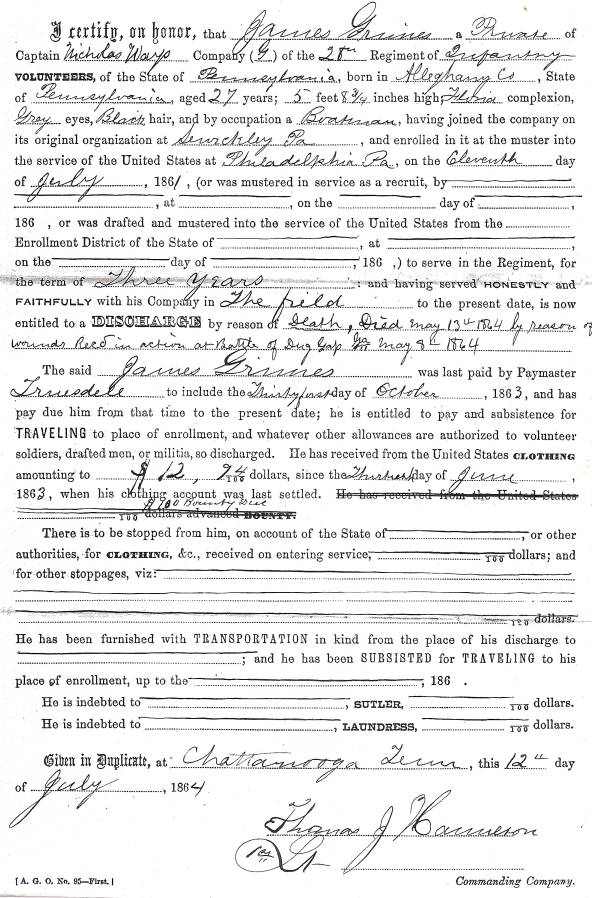 I certify, on honor, that James Grimes a Private of
Captain Nicholas Ways Company (G) of the 28th Regiment of Infantry
VOLUNTEERS, of the State of Pennsylvania, born in Alleghany Co, State
of Pennsylvania, aged 27 years; 5 feet 8 3/4 inches high, complexion,
Grey eyes, Black hair, and by occupation a Boatman, having joined the company on
its original organization at Sewickley Pa, and enrolled in it at the muster into
the service of the United States at Philadelphia Pa, on the Eleventh day
of July, 1861, (or was mustered in service as a recruit, by
, at , on the day of ,
186 , or was drafted and mustered into the service of the United States from the
Enrollment District of the State of , at ,
on the day of , 186 ,) to serve in the Regiment, for
the term of Three Years : and having served HONESTLY and
FAITHFULLY with his Company in The field to the present date, is now
entitled to a DISCHARGE by reason of Death, Died May 13th 1864 by reason of
wounds Recd in action at Battle of Dug Gap Ga May 8th 1864
The said James Grimes was last paid by Paymaster
Truesdell to include the Thirty first day of October, 1863, and has
pay due him from that time to the present date; he is entitled to pay and subsistence for
TRAVELING to place of enrollment, and whatever other allowances are authorized to volunteer
soldiers, drafted men, or militia, so discharged. He has received from the United States CLOTHING
amounting to $12, 94/100 dollars, since the Thirtieth day of June,
1863, when his clothing account was last settled. He has received from the United States
$100 Bounty Due
100 dollars advanced BOUNTY.
There is to be stopped from him, on account of the State of , or other
authorities, for CLOTHING, &c., received on entering service, 100 dollars; and
for other stoppages, viz:
100 dollars.
He has been furnished with TRANSPORTATION in kind from the place of his discharge to
; and he has been SUBSISTED for TRAVELING to his
place of enrollment, up to the , 186 .
He is indebted to , SUTLER, 100 dollars.
He is indebted to , LAUNDRESS, 100 dollars.
Given in Duplicate, at Chattanooga Tenn, this 12th day
of July, 1864
Thomas J Hamilton
1st Lt
[A. G. O. No. 95—First.] Commanding Company.